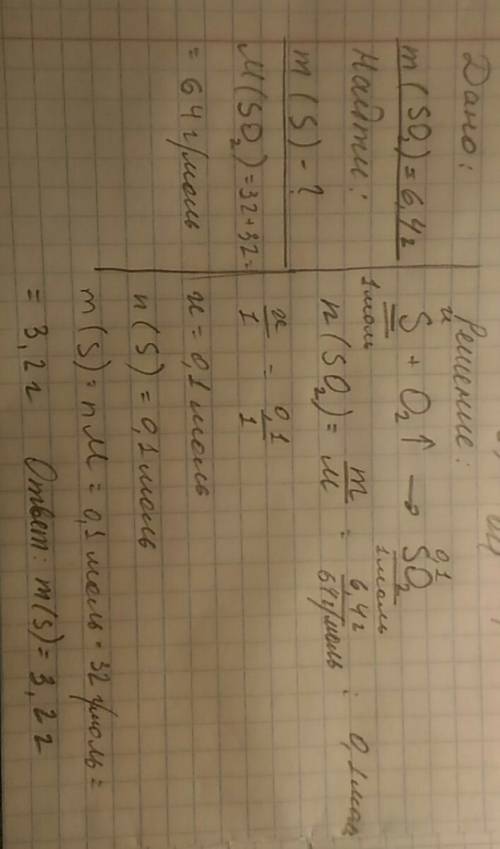 Дано:
m(SO₂)=6,4г
Найти:
m(S)-?
M(SO₂)=32+32=
=64г/моль
Решение:
x 0,1
S + O₂↑ → SO₂
1моль 1моль
n(SO₂)= m/M = 6,4г/64г/моль : 0,1мол
x/1 = 0,1/1
x=0,1моль
n(S)=0,1моль
m(S)=nM=0,1моль·32г/моль=
=3,2г Ответ: m(S)=3,2г